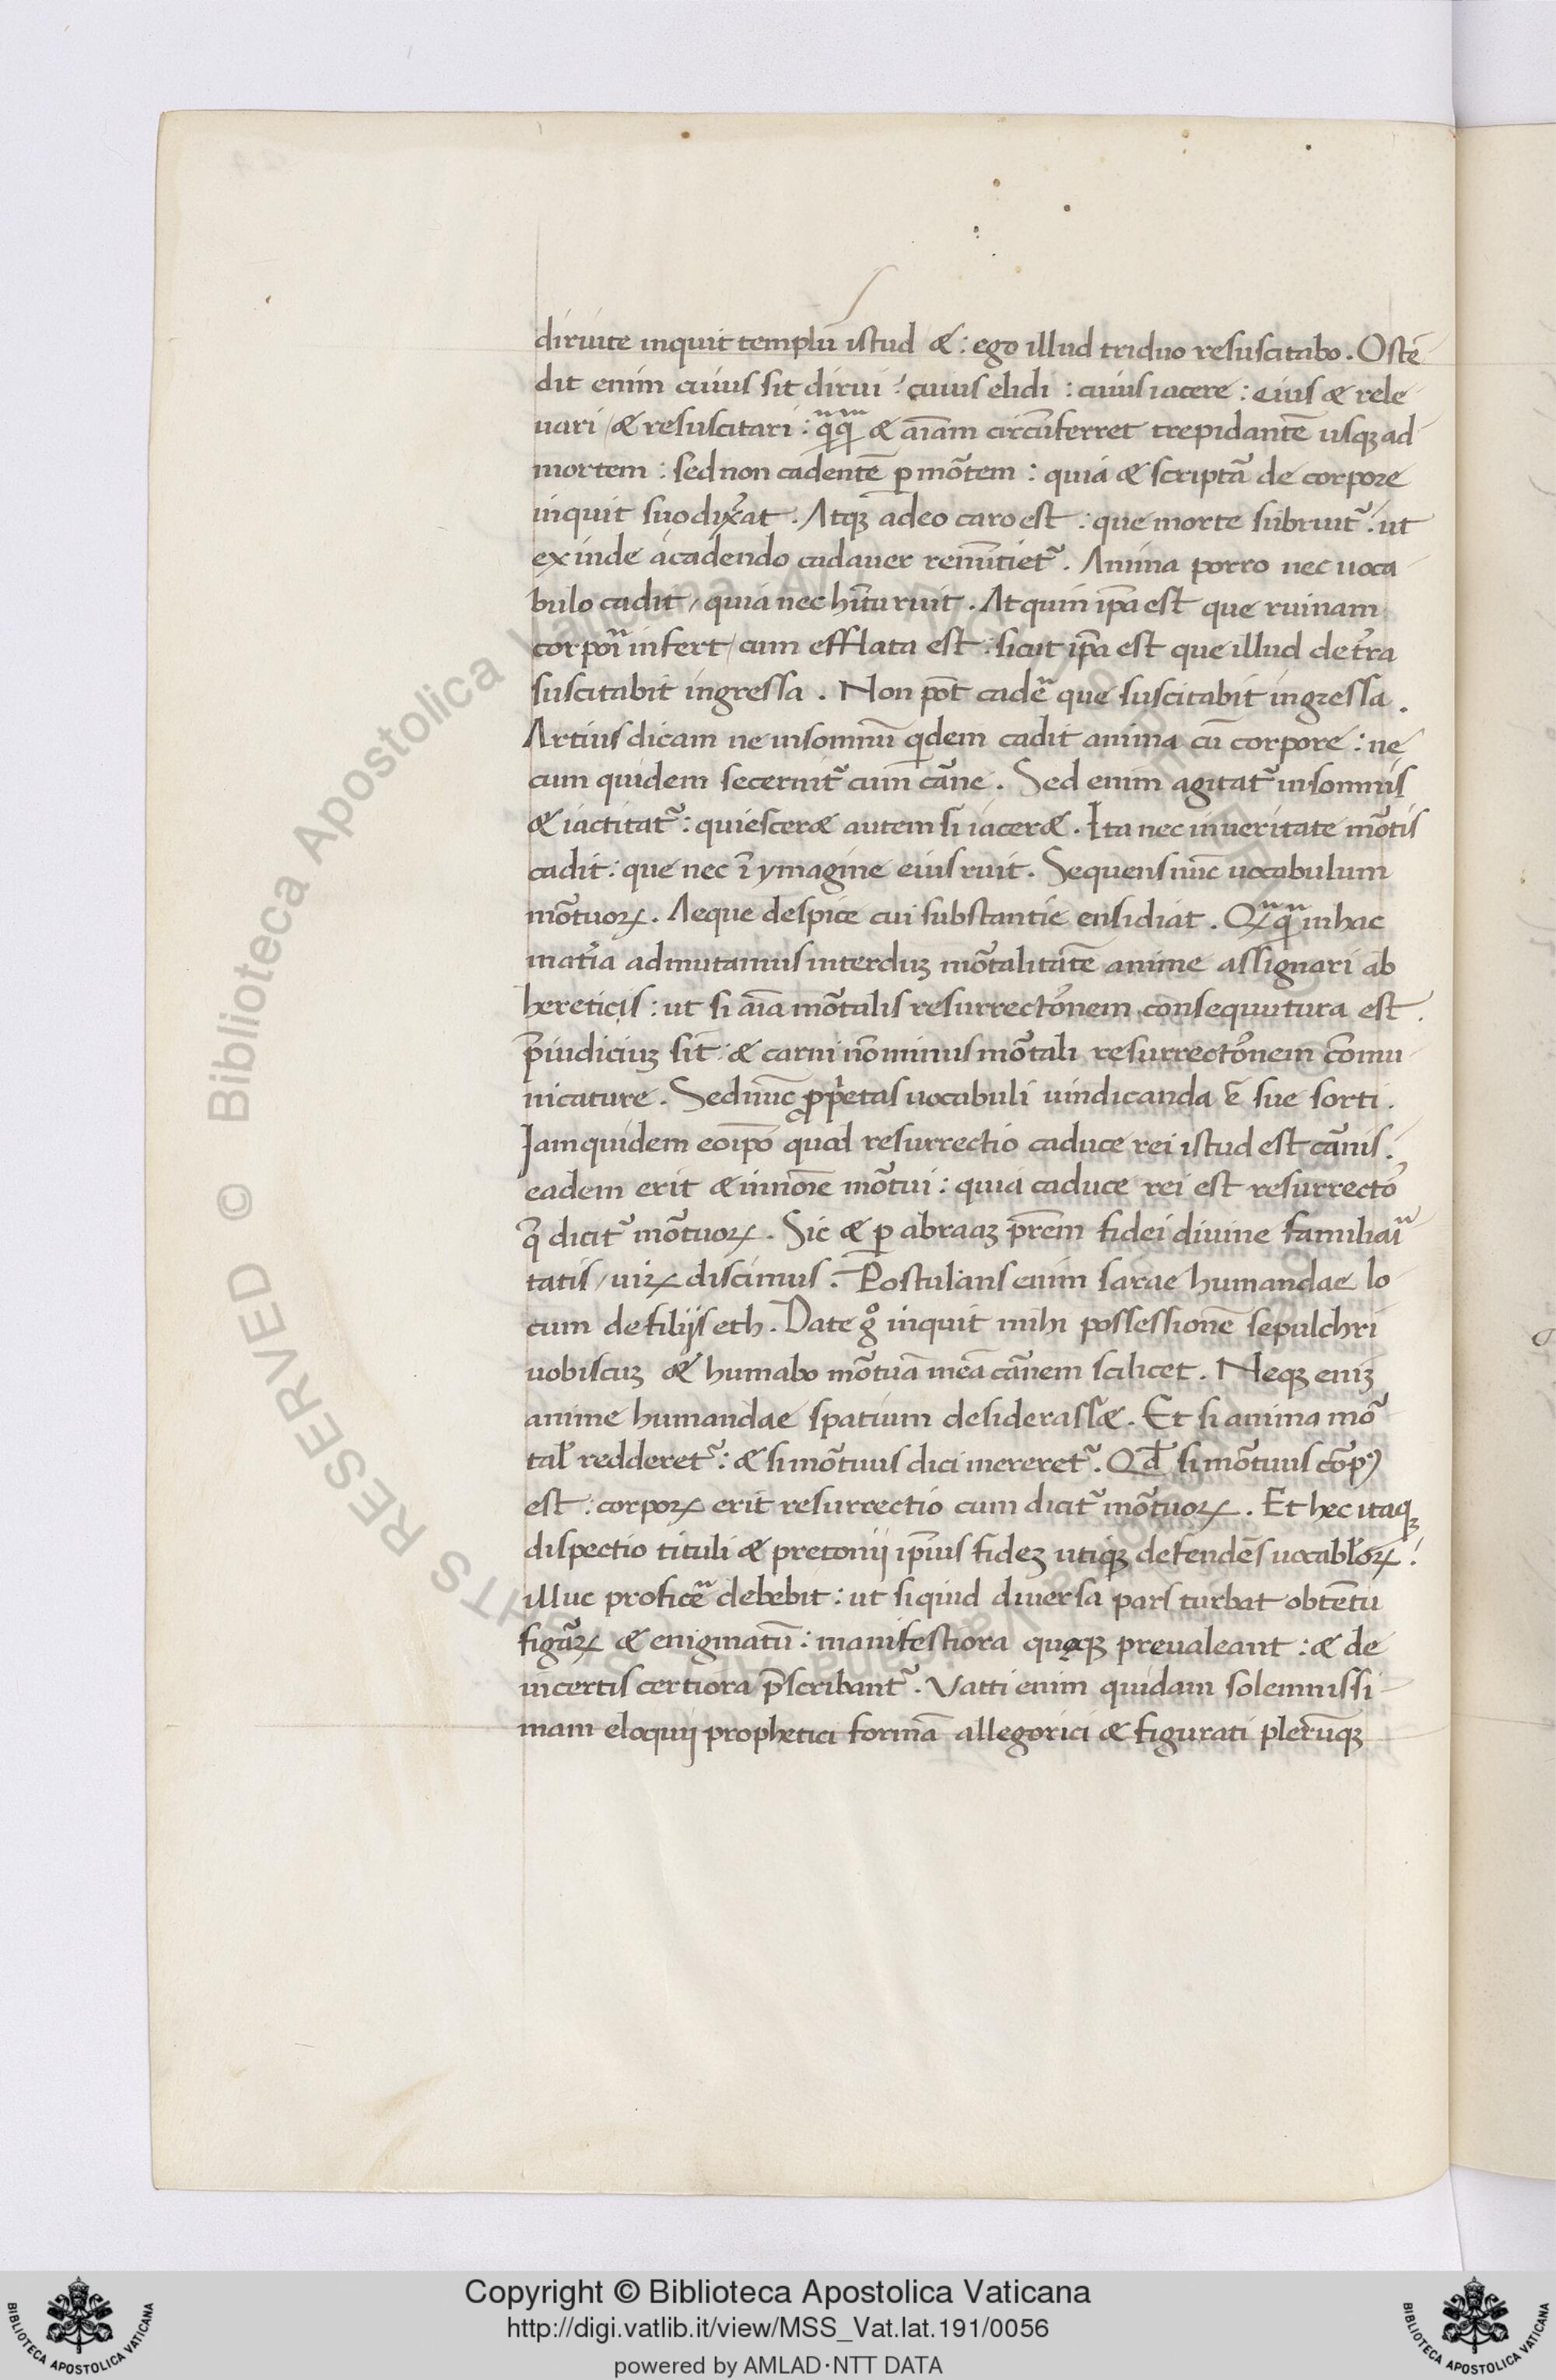 diruite inquit templū istud &: ego illud triduo resuscitabo. Ostē
dit enim cuius sit dirui? cuius elidi: cuius iacere: eius & rele
uari / & resuscitari: & aīam circūferret trepidantē usqꝫ ad
mortem: sed non cadentē ꝑ mōtem: quia & scriptā de corpore
inquit suo dix̄at. Atqꝫ adeo caro est: que morte subruit᷑: ut
exinde a cadendo cadauer renūtiet᷑. Anima porro nec uoca
bulo cadit / quia nec hītu ruit. Atquin ip̄a est que ruinam
corpori infert / cum efflata est: sicut ip̄a est que illud de t̄ra
suscitabit ingressa. Non pōt cadē que suscitabit ingressa.
Artius dicam ne in somnū qdem cadit anima cū corpore: ne
cum quidem secernit᷑ cum cāne. Sed enim agitat᷑ in somnis
& iactitat᷑: quiescer& autem si iacer&. Ita nec in ueritate mōtis
cadit: que nec ī ymagine eius ruit. Sequens nūc uocabulum
mōtuoꝝ. Aeque despice cui substantie ensidiat. in hac
mat̄ia admutamus interduꝫ mōtalitatē anime assignari ab
hereticis: ut si aīa mōtalis resurrectōnem consequutura est.
p̄iudiciuꝫ sit: & carni nō minus mōtali resurrectōnem cōmu
nicature. Sed nūc ꝓp̄etas uocabuli uindicanda ē sue sorti.
Iam quidem eo ip̄o quod resurrectio caduce rei istud est cānis:
eadem erit & in nōīe mōtui: quia caduce rei est resurrectō
q̄ dicit᷑ mōtuoꝝ. Sic & ꝑ abraaꝫ p̄rem fidei diuine familiari
tatis / uiꝝ discimus. Postulans enim sarae humandae lo
cum de filijs eth. Date gͦ inquit mihi possessionē sepulchri
uobiscuꝫ & humabo mōtuā meā cānem scilicet. Neqꝫ eniꝫ
anime humandae spatium desiderass&. Et si anima mō
tal̄ redderet᷑: & si mōtuus dici mereret᷑. Qd̄ si mōtuus cōpꝰ
est: corpoꝝ erit resurrectio cum dicit᷑ mōtuoꝝ. Et hec itaqꝫ
dispectio tituli & preconij ip̄ius fideꝫ utiqꝫ defendēs uocabloꝝ:
illuc proficē debebit: ut si quid diuersa pars turbat obtētu
figūꝝ & enigmatū: manifestiora quęqꝫ preualeant: & de
incertis certiora p̄scribant᷑. Vacti enim quidam solemnissi
mam eloquij prophetici formā allegorici & figurati plerūqꝫ
Copyright © Biblioteca Apostolica Vaticana
http://digi.vatlib.it/view/MSS_Vat.lat.191/0056
powered by AMLAD·NTT DATA
BIBLIOTECA APOSTOLICA VATICANA
BIBLIOTECA APOSTOLICA VATICANA